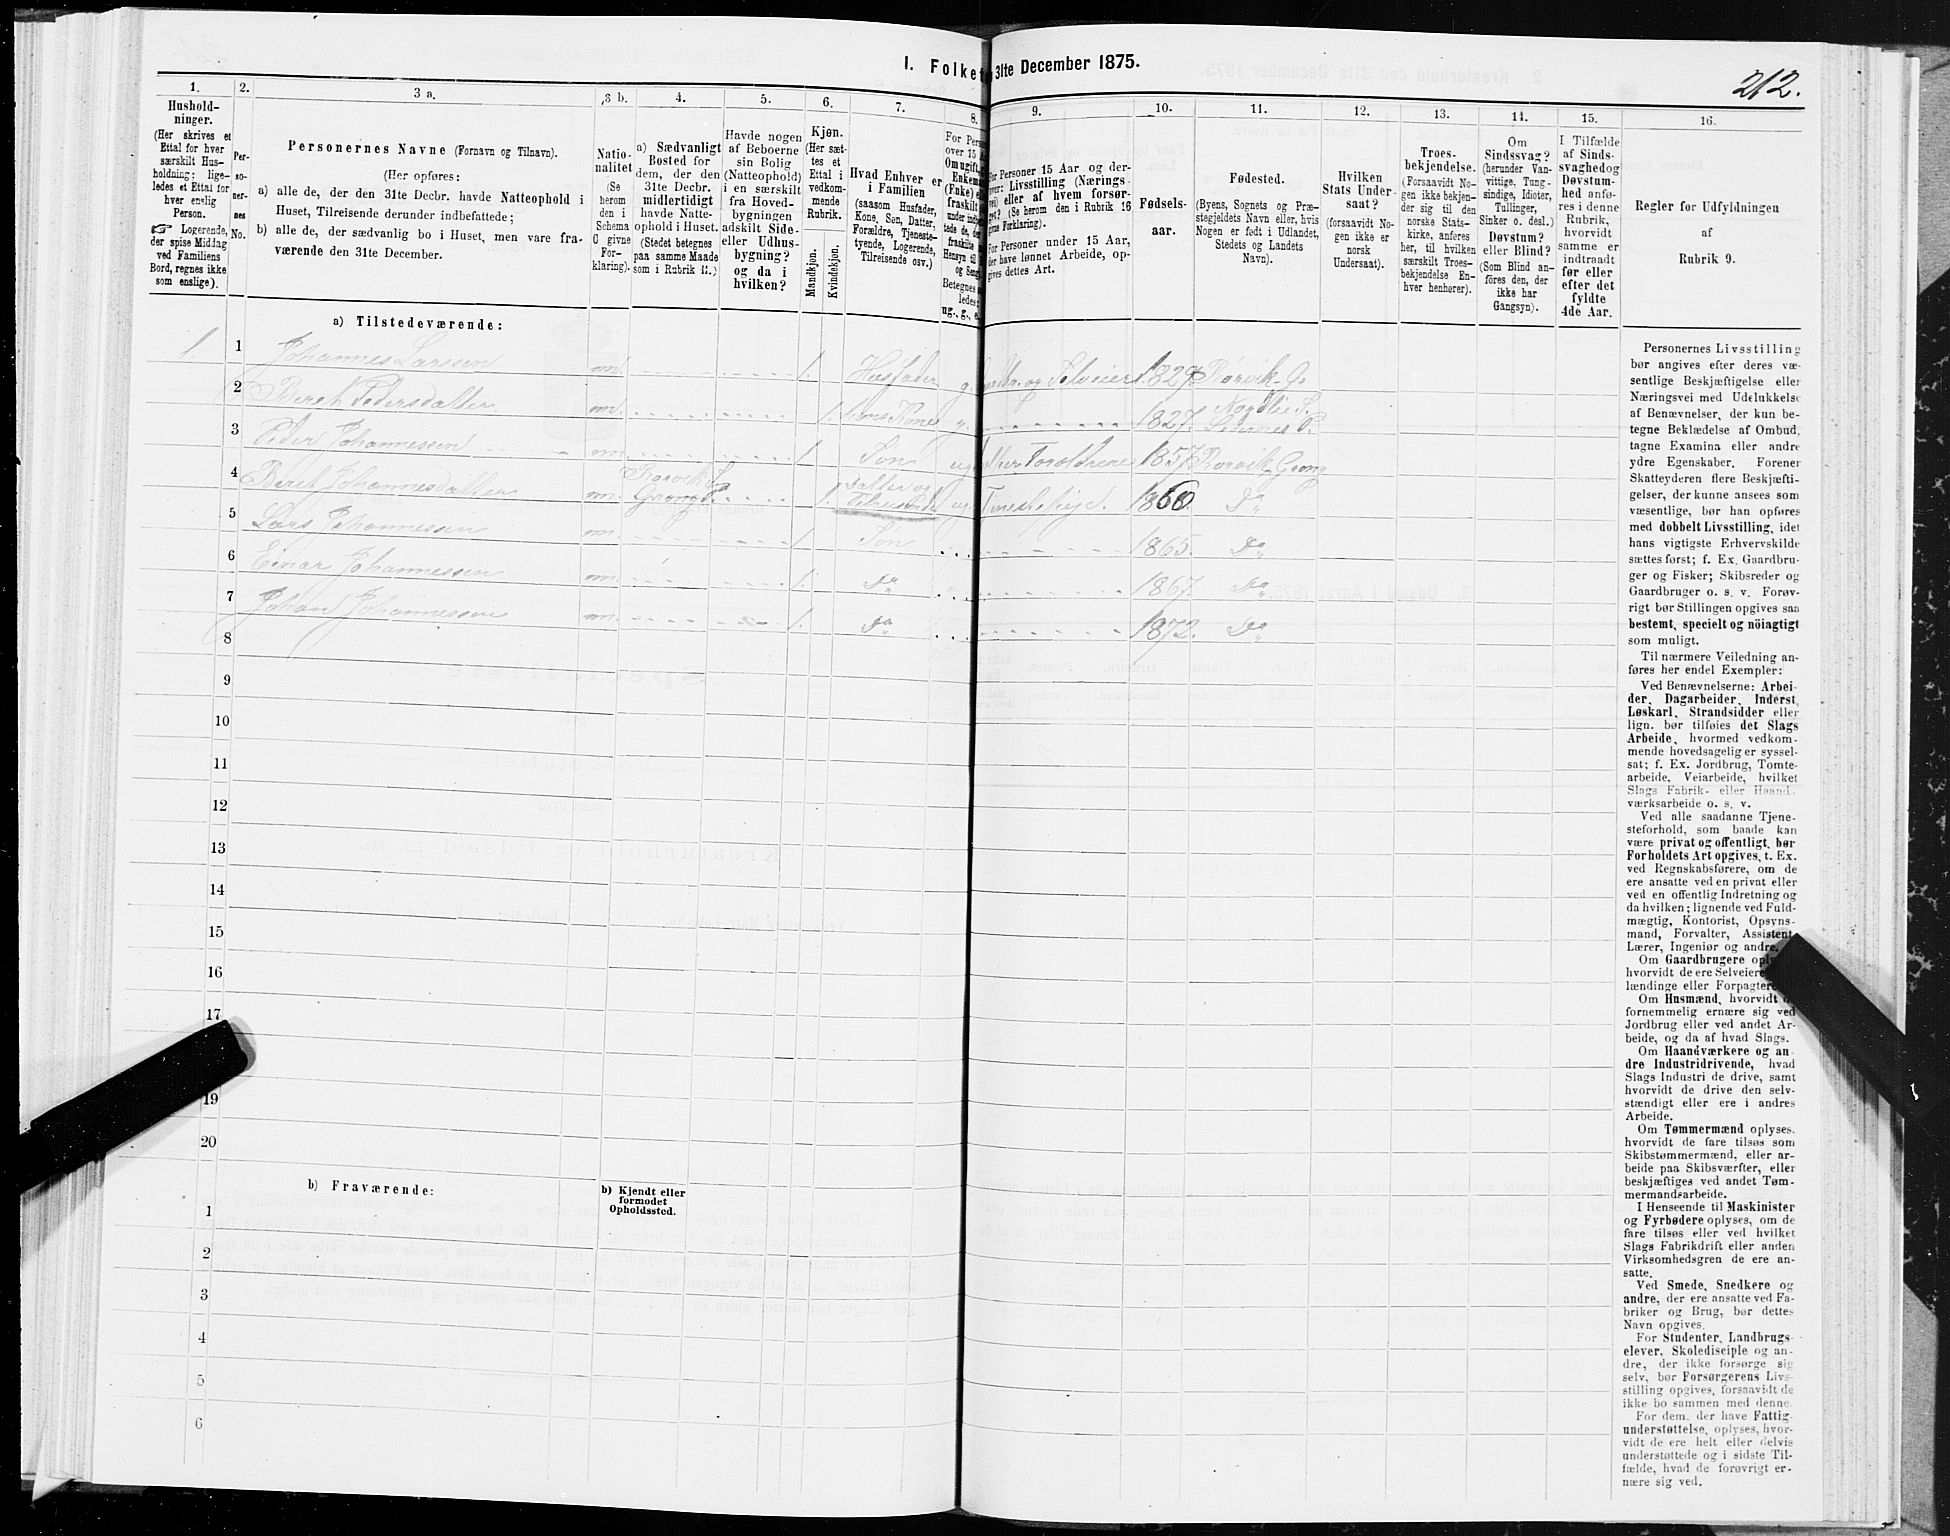 I. Folket 31te December 1875.
212.
1.
Hushold-
ninger.
(Her skrives et
Ettal for hver
særskilt Hus-
holdning; lige-
ledes et Ettal for
hver enslig
Person.
☞ Logerende,
der spise Middag
ved Familiens
Bord, regnes ikke
som enslige).
2.
Per-
so-
ner-
nes
No.
3 a.
Personernes Navne (Fornavn og Tilnavn).
(Her opføres:
a) alle de, der den 31te Decbr. havde Natteophold i
Huset, Tilreisende derunder indbefattede;
b) alle de, der sædvanlig bo i Huset, men vare fra-
værende den 31te December.
3 b.
Natio-
nalitet
(Se
herom
den i
Schema
C givne
For-
klaring).
4.
a) Sædvanligt
Bosted for
dem, der den
31te Decbr.
midlertidigt
havde Natte-
ophold i Huset.
(Stedet betegnes
paa samme Maade
som i Rubrik 11.)
5.
Havde nogen
af Beboerne
sin Bolig
(Natteophold)
i en særskilt
fra Hoved-
bygningen
adskilt Side-
eller Udhus-
bygning?
og da i
hvilken?
6.
Kjøn.
(Her sæt-
tes et
Ettal i
vedkom-
mende
Rubrik.
Mandkjøn.
Kvindekjøn.
7.
Hvad Enhver er
i Familien
(saasom Husfader,
Kone, Søn, Datter,
Forældre, Tjeneste-
tyende, Logerende,
Tilreisende osv.)
8.
For Pers
over 15 A
Omugift,
Enkema
(Enke) e
fraskilt
under indbe-
tede de,
fraskilte
Hensyn til
og Seng.
Betegnes
ledes:
ug., g., e.
9.
For Personer 15 Aar og der-
over: Livsstilling (Nærings-
vei) eller af hvem forsør-
get? (Se herom den i Rubrik 16
givne Forklaring).
For Personer under 15 Aar,
der have lønnet Arbeide, op-
gives dettes Art.
10.
Fødsels-
aar.
11.
Fødested.
(Byens, Sognets og Præ-
stegjeldets Navn eller, hvis
Nogen er født i Udlandet,
Stedets og Landets
Navn).
12.
Hvilken
Stats Under-
saat?
(forsaavidt No-
gen ikke er
norsk
Undersaat).
13.
Troes-
bekjendelse.
(Forsaavidt No-
gen ikke bekjen-
der sig til den
norske Stats-
kirke, anføres
her, til hvilken
særskilt Troes-
bekjendelse En-
hver henhører).
14.
Om
Sindssvag?
(herunder Van-
vittige, Tung-
sindige, Idioter,
Tullinger,
Sinker o. desl.)
Døvstum?
eller Blind?
(Som Blind an-
føres den, der
ikke har
Gangsyn).
15.
I Tilfælde
af Sinds-
svaghed og
Døvstum-
hed anfø-
res i denne
Rubrik,
hvorvidt
samme er
indtraadt
før eller
efter det
fyldte
4de Aar.
16.
Regler for Udfyldningen
af
Rubrik 9.
a) Tilstedeværende:
1 1 Johannes Larssen m. 1. Husfader g. og Selveier 1829. Rørvik G.
2 Beret Pedersdatter m. 1. hans Kone g. 1827. Nordlie S.
3 Peder Johannessen m. 1 Søn ug. Forældrene 1857. Rørvik Grong
4 Beret Johannesdatter m. Rørvik S. Grong P. 1. Datter og ug. Tjenestepige. 1860 Do
5 Lars Johannessen m. 1. Søn 1865. Do
6 Einar Johannessen m. 1. Do 1867. Do
7 Johan Johannessen m. 1. Do 1872. Do
8
9
10
11
12
13
14
15
16
17
19
20
b) Fraværende:
b) Kjendt eller
formodet
Opholdssted.
1
2
3
4
5
6
Personernes Livsstilling
bør angives efter deres væ-
sentlige Beskjæftigelse eller
Næringsvei med Udelukkelse
af Benævnelser, der kun be-
tegne Beklædelse af Ombud,
tagne Examina eller andre
ydre Egenskaber. Forener
Skatteyderen flere Beskjæfti-
gelser, der kunne ansees som
væsentlige, bør han opføres
med dobbelt Livsstilling, idet
hans vigtigste Erhvervskilde
sættes først; f. Ex. Gaardbru-
ger og Fisker; Skibsreder og
Gaardbruger o. s. v. Forøv-
rigt bør Stillingen opgives saa
bestemt, specielt og nöiagtigt
som muligt.
Til nærmere Veiledning an-
føres her endel Exempler:
Ved Benævnelserne: Arbei-
der, Dagarbeider, Inderst,
Løskarl, Strandsidder eller
lign. bør tilføies det Slags
Arbeide, hvormed vedkom-
mende hovedsagelig er syssel-
sat; f. Ex. Jordbrug, Tomte-
arbeide, Veiarbeide, hvilket
Slags Fabrik- eller Haand-
værksarbeide o. s. v.
Ved alle saadanne Tjene-
steforhold, som baade kan
være privat og offentligt, bør
Forholdets Art opgives, t. Ex.
ved Regnskabsførere, om de
ere ansatte ved en privat eller
ved en offentlig Indretning og
da hvilken; lignende ved Fuld-
mægtig, Kontorist, Opsyns-
mand, Forvalter, Assistent,
Lærer, Ingeniør og andre.
Om Gaardbrugere opl
hvorvidt de ere Selveiere
lændinge eller Forpagtere
Om Husmænd, hvorvidt
fornemmelig ernære sig ved
Jordbrug eller ved andet Ar-
beide, og da af hvad Slags.
Om Haandværkere og an-
dre Industridrivende, hvad
Slags Industri de drive, samt
hvorvidt de drive den selv-
stændigt eller ere i andres
Arbeide.
Om Tømmermænd oplyses,
hvorvidt de fare tilsøs som
Skibstømmermænd, eller ar-
beide paa Skibsværfter, eller
beskjæftiges ved andet Tøm-
mermandsarbeide.
I Henseende til Maskinister
og Fyrbødere oplyses, om de
fare tilsøs eller ved hvilket
Slags Fabrikdrift eller anden
Virksomhedsgren de ere an-
satte.
Ved Smede, Snedkere og
andre, der ere ansatte ved Fa-
briker og Brug, bør dettes
Navn opgives.
For Studenter, Landbrugs-
elever, Skoledisciple og an-
dre, der ikke forsørge sig
selv, bør Forsørgerens Livs-
stilling opgives, forsaavidt de
ikke bo sammen med denne.
For dem, der have Fattig-
understøttelse, oplyses, hvor-
vidt de ere helt eller delvis
understøttede og i sidste Til-
fælde, hvad de forøvrigt er-
nære sig ved.